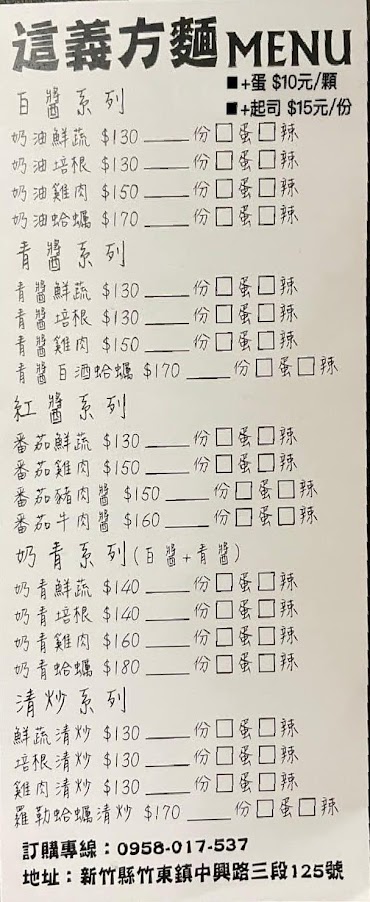 這義方麵 MENU
■+蛋 $10元/顆
■+起司 $15元/份
白醬系列
奶油鮮蔬 $130 ____份□蛋□辣
奶油培根 $130 ____份□蛋□辣
奶油雞肉 $150 ____份□蛋□辣
奶油蛤蠣 $170 ____份□蛋□辣
青醬系列
青醬鮮蔬 $130 ____份□蛋□辣
青醬培根 $130 ____份□蛋□辣
青醬雞肉 $150 ____份□蛋□辣
青醬白酒蛤蠣 $170 ____份□蛋□辣
紅醬系列
番茄鮮蔬 $130 ____份□蛋□辣
番茄雞肉 $150 ____份□蛋□辣
番茄豬肉醬 $150 ____份□蛋□辣
番茄牛肉醬 $160 ____份□蛋□辣
奶青系列(白醬+青醬)
奶青鮮蔬 $140 ____份□蛋□辣
奶青培根 $140 ____份□蛋□辣
奶青雞肉 $160 ____份□蛋□辣
奶青蛤蠣 $180 ____份□蛋□辣
清炒系列
鮮蔬清炒 $130 ____份□蛋□辣
培根清炒 $130 ____份□蛋□辣
雞肉清炒 $130 ____份□蛋□辣
羅勒蛤蠣清炒 $170 ____份□蛋□辣
訂購專線：0958-017-537
地址：新竹縣竹東鎮中興路三段125號